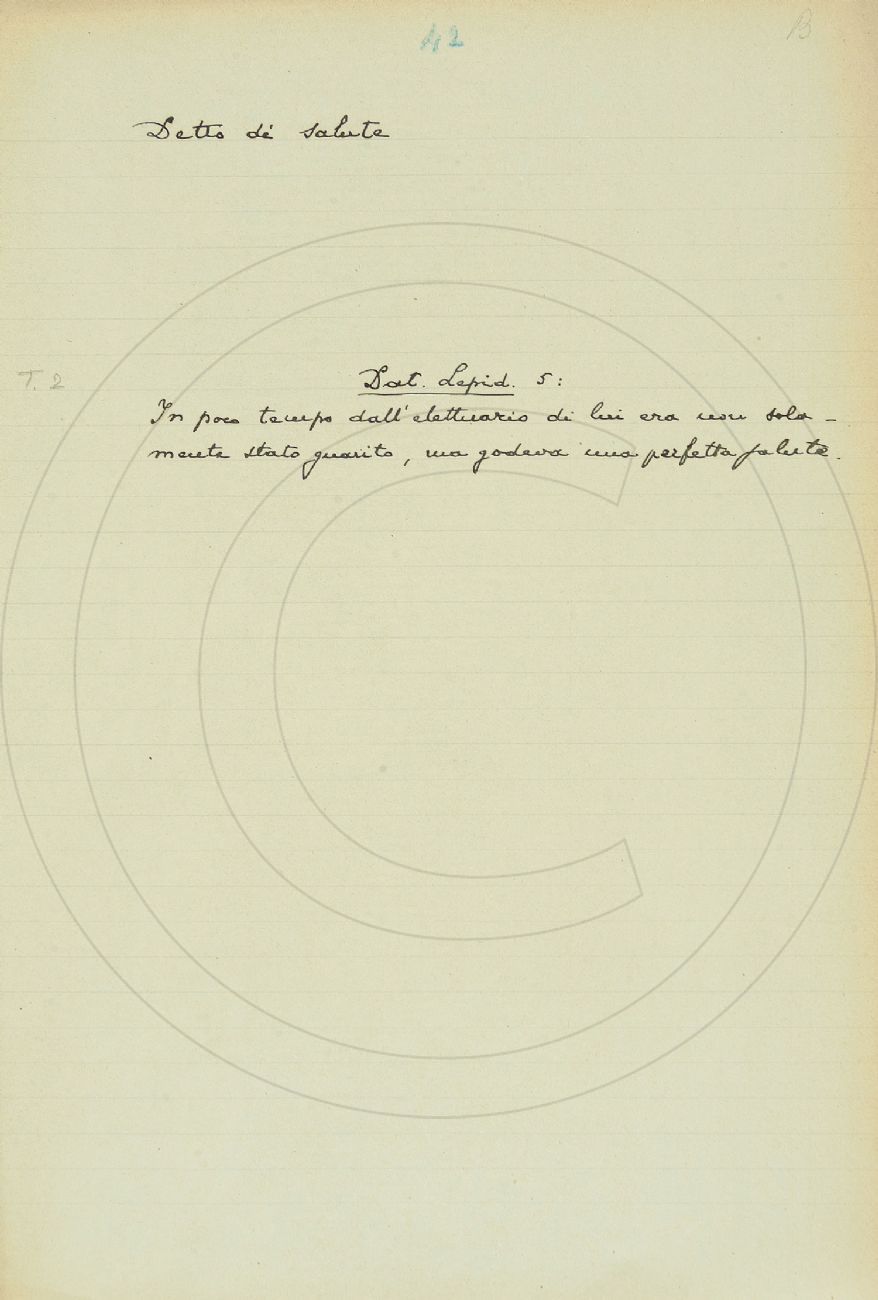 42 B
Detto di salute
T. 2 Dat. Lepid. 5:
In poco tempo dall'elettuario di lui era non sola-
mente stato guarito, ma godeva una perfetta salute.